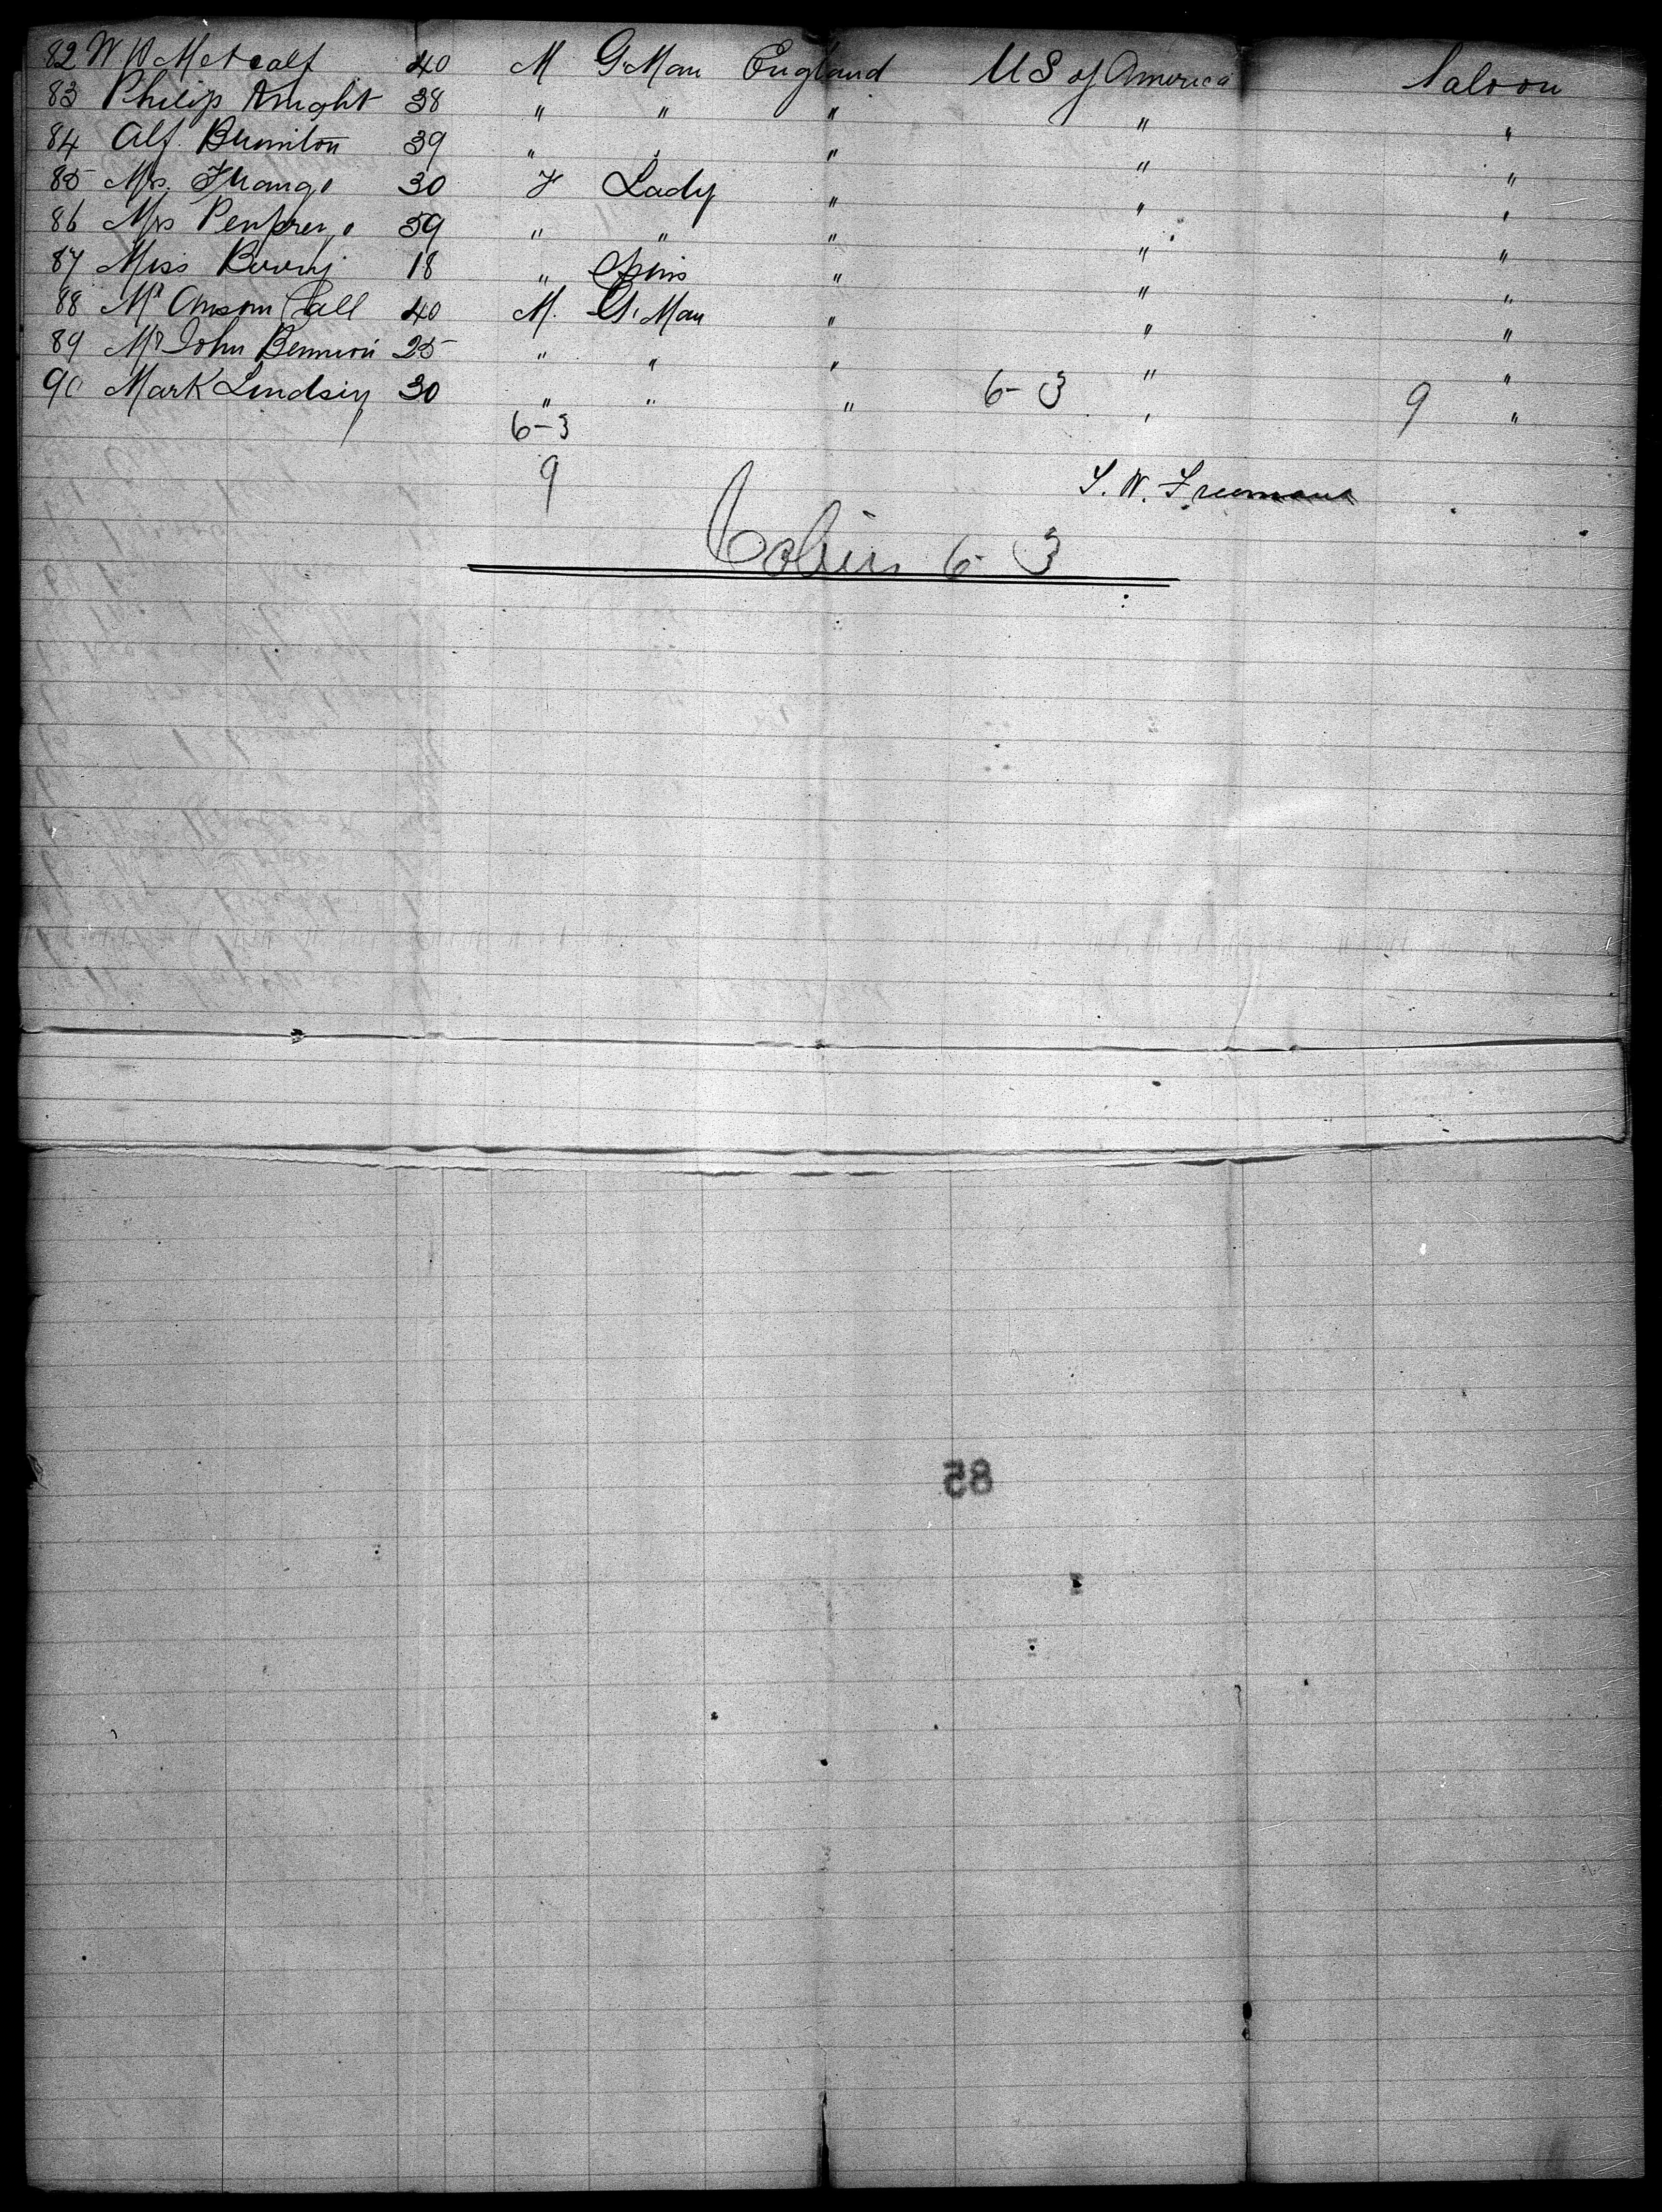 82 W W Metcalf 40 M G.Man England U S of America Saloon
83 Philip Knight 38 " " " " "
84 Alf. 39 " " " " "
85 Mrs. 30 F Lady " " "
86 Mrs 39 " " " " "
87 Miss 18 " Spins " " "
88 Mr Anson Call 40 M. G. Man " " "
89 Mr John Bennion 25 " " " " "
90 Mark Lindsey 30 " " " 6-3 " 9 "
6-3
9
Freeman
Cabin 6-3
85